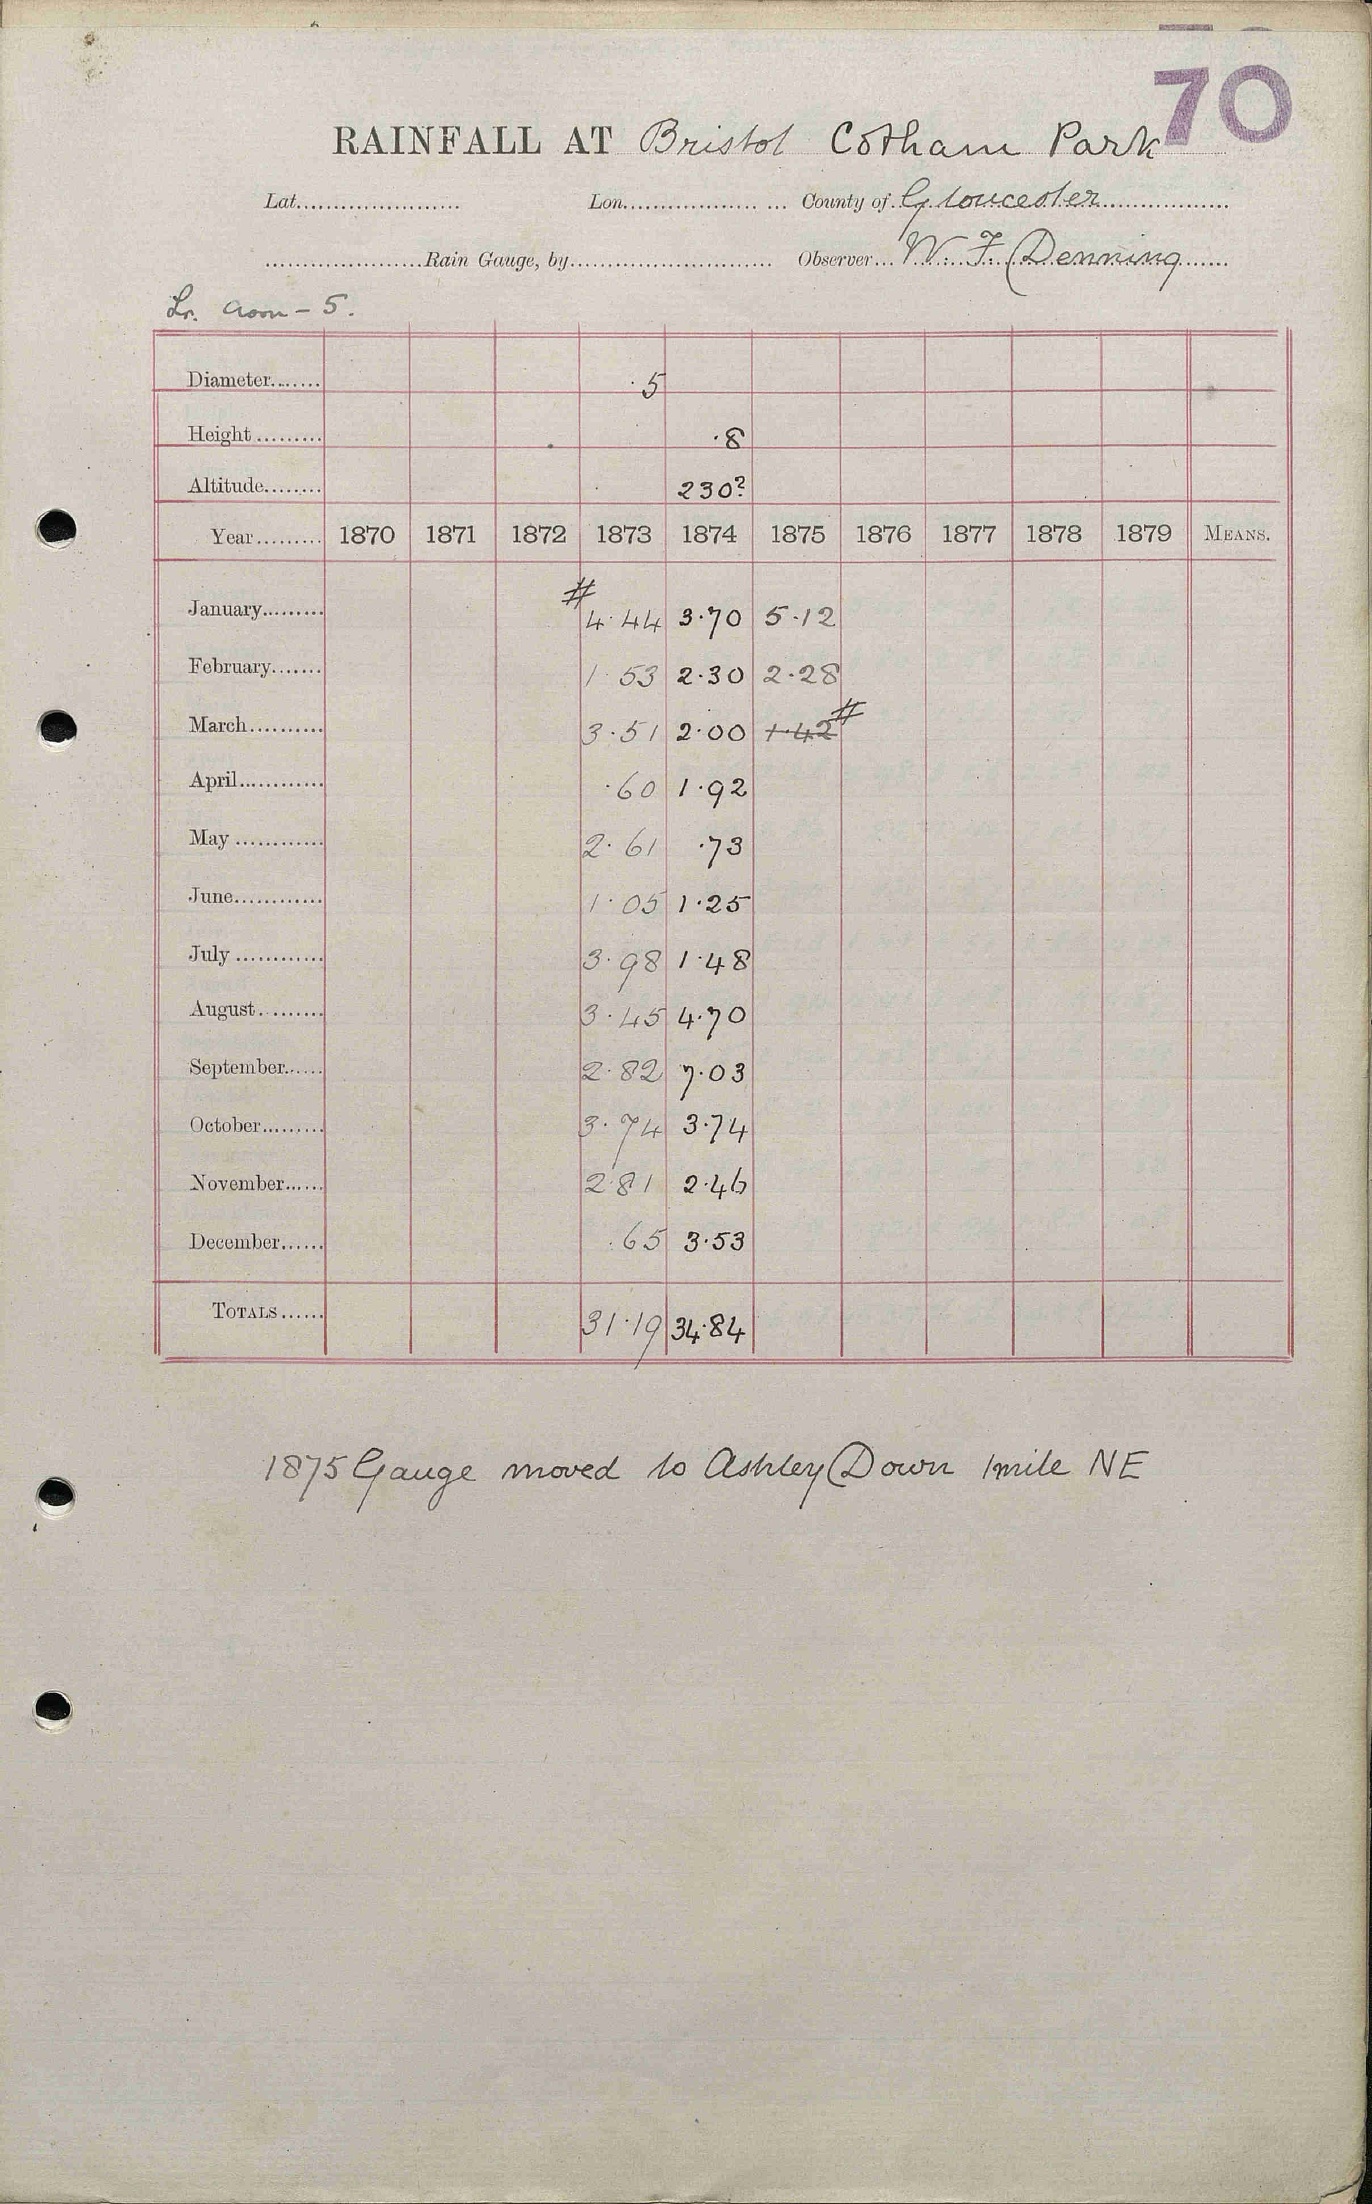 70
RAINFALL AT Bristol Cotham Park
Lat. Lon. County of Gloucester
Rain Gauge, by Observer W. F. Denning
5.
Diameter ·5
Height ·8
Altitude 230?
Year 1870 1871 1872 1873 1874 1875 1876 1877 1878 1879 MEANS.
January # 4·44 3·70 5·12
February 1·53 2·30 2·28
March 3·51 2·00 1·42 #
April ·60 1·92
May 2·61 ·73
June 1·05 1·25
July 3·98 1·48
August 3·45 4·70
September 2·82 7·03
October 3·74 3·74
November 2·81 2·46
December ·65 3·53
TOTALS 31·19 34·84
1875 Gauge moved to Ashley Down 1 mile NE